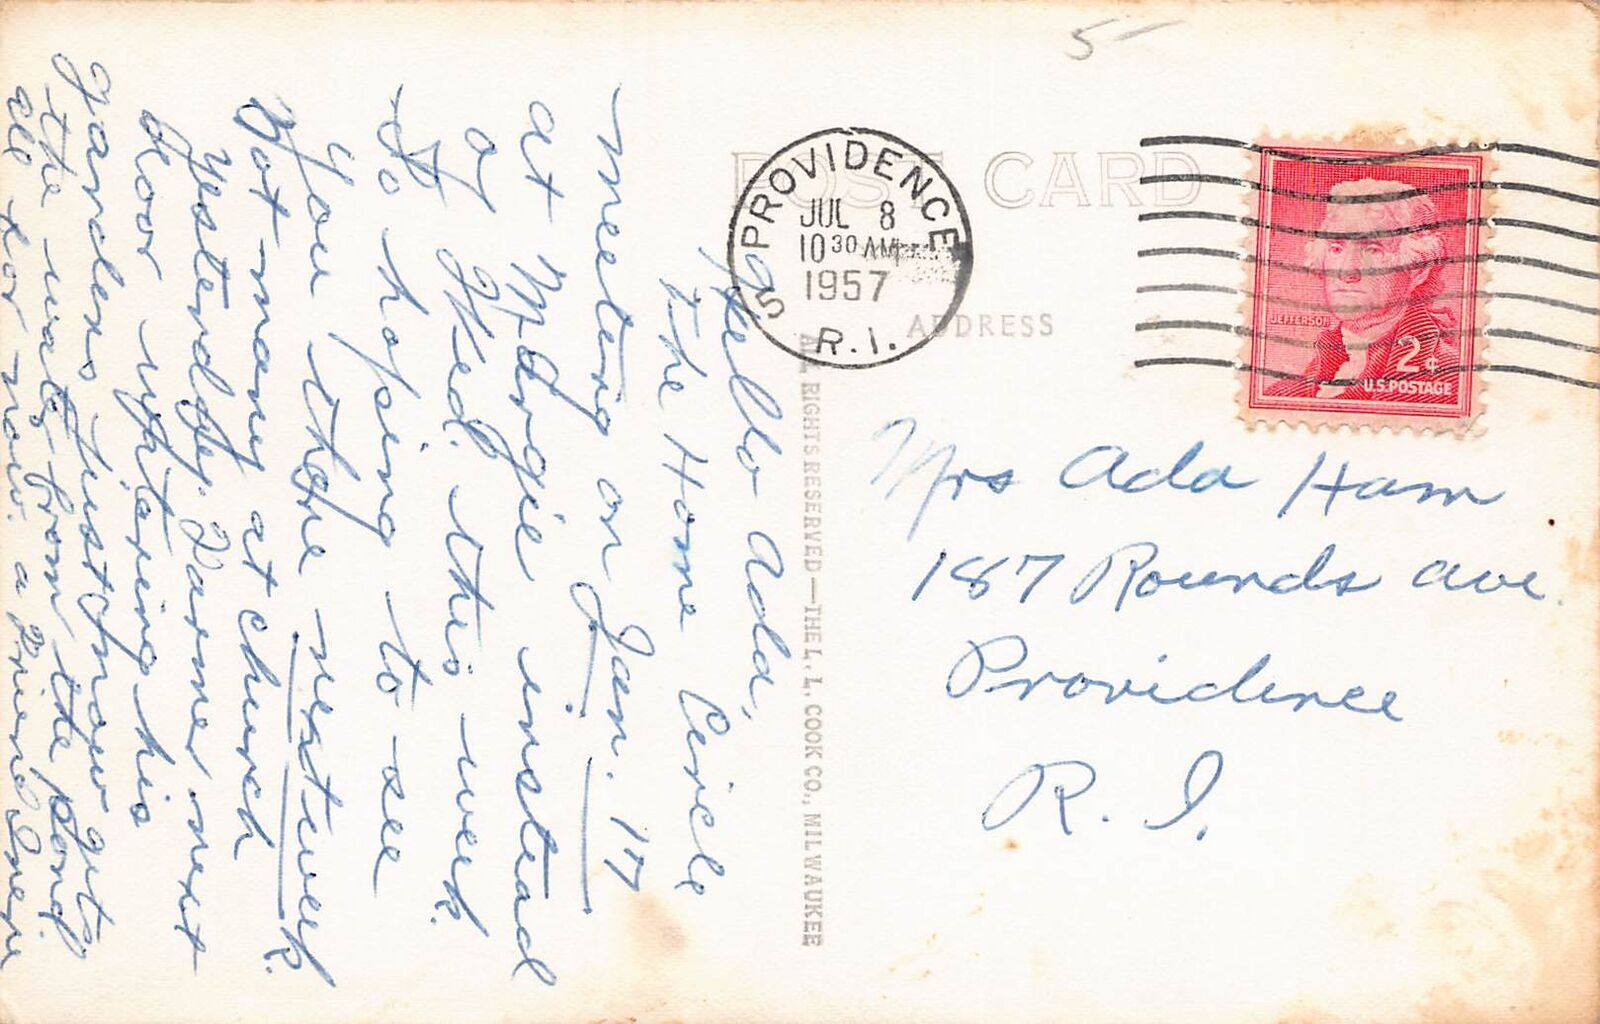 5
POST CARD
PROVIDENCE
JUL 8
10 30 AM
1957
5
R.I.
ADDRESS
JEFFERSON
2¢
U.S. POSTAGE
Mrs Ada Ham
187 Rounds ave.
Providence
R. I.
ALL RIGHTS RESERVED—THE L. L. COOK CO., MILWAUKEE
Hello Ada,
The Home Circle
meeting on Jan. 17
at Margie instead
of Wed. this week.
So hoping to see
you there next week.
Not many at church
yesterday. Farmer next
door watering his
gardens just now gets
the water from the pond.
all for now. a Friend